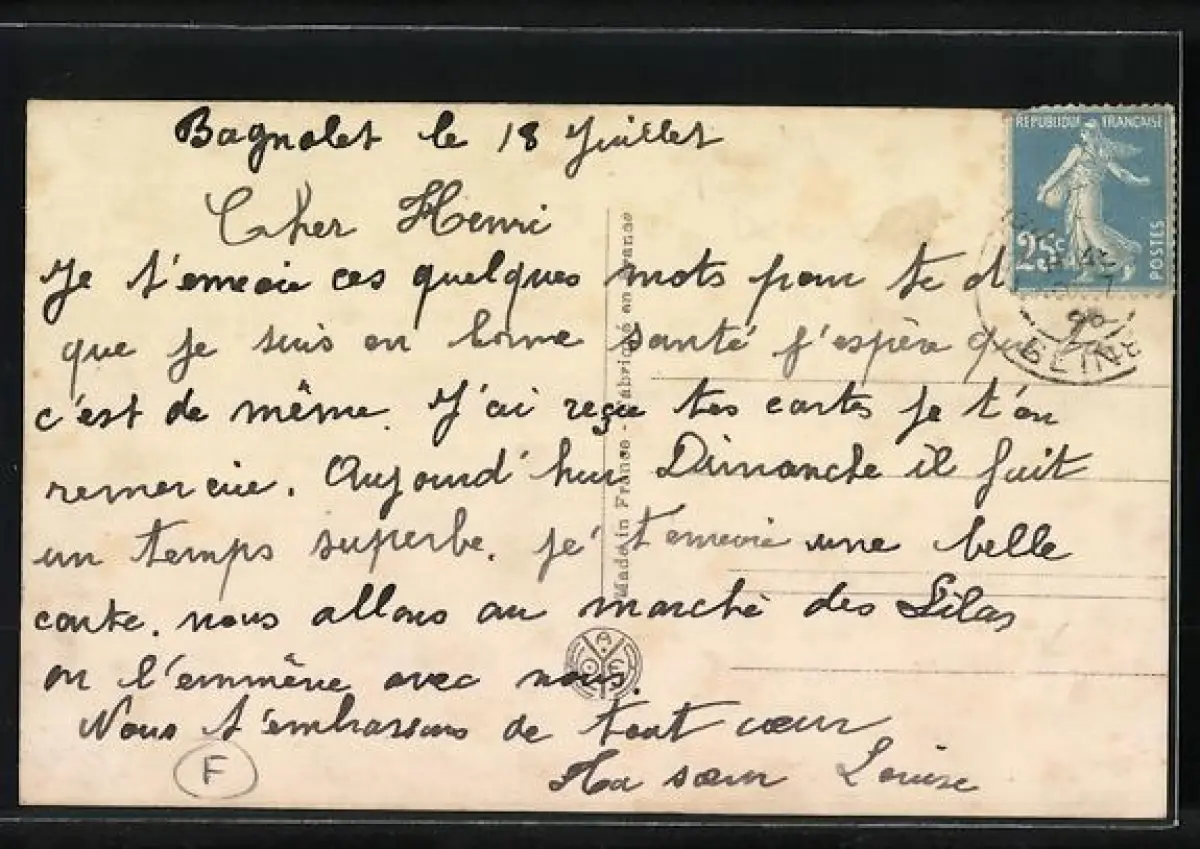 Bagnolet le 18 Juillet
Cher Henri
Je t'envoie ces quelques mots pour te d
que je suis en bonne santé j'espère qu
c'est de même. J'ai reçu tes cartes je t'en
remercie. Aujourd'hui Dimanche il fait
un temps superbe. je t'envoie une belle
carte. nous allons au marché des Lilas
on l'emmène avec nous.
Nous t'embrassons de tout cœur
Ta sœur Louise
F
REPUBLIQUE FRANÇAISE
25c
POSTES
SEINE
Made in France - Fabriqué en France